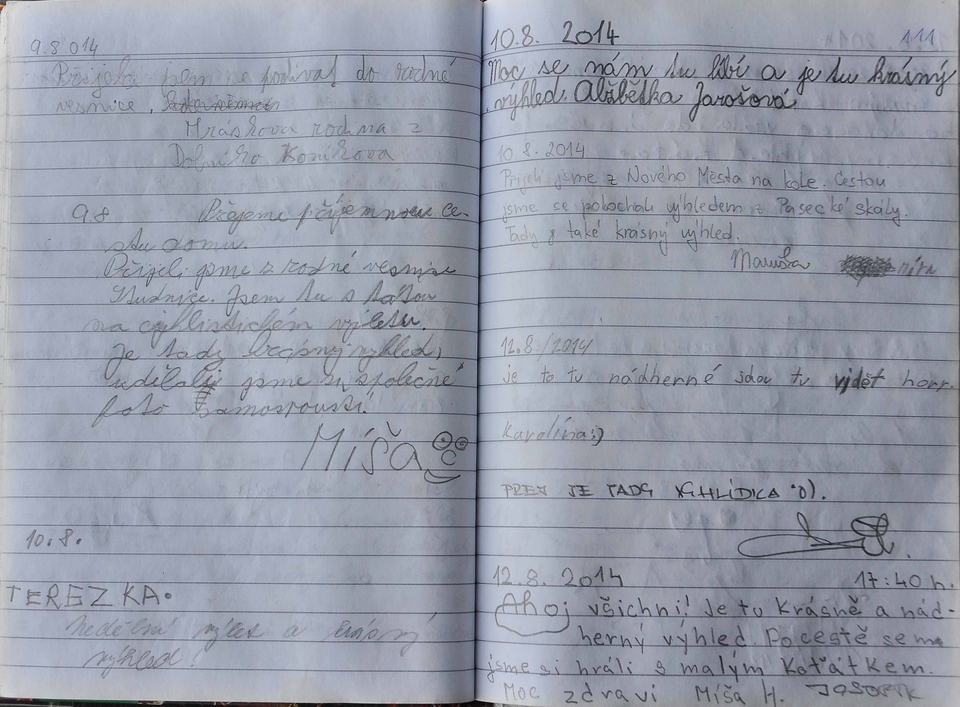 9.8 014
Přijela jsem se podívat do rodné
vesnice,
Mráskova rodina z
9.8 Přejeme příjemnou ce-
stu domu.
Přijeli jsme z rodné vesnice
Studnice. Jsem tu s tátou
na cyklistickém výletu.
Je tady krásný výhled,
udělali jsme si společné
foto samospouští!
Míša
10.8.
TEREZKA.
Nedělní výlet a krásný
výhled!
10.8. 2014
111
Moc se nám tu líbí a je tu krásný
výhled. Alžbětka Jarošová
10 8. 2014
Přijeli jsme z Nového Města na kole. Cestou
jsme se pokochali výhledem z Pasecké skály.
Tady je také krásný výhled.
Maruška
12.8./2014
je to tu nádherné jdou tu vidět hory.
Karolína:)
PREJ JE TADY VYHLÍDKA :o).
12.8. 2014 17:40 h.
Ahoj všichni! Je tu krásně a nád-
herný výhled. Po cestě sem
jsme si hráli s malým koťátkem.
Moc zdraví Míša H.